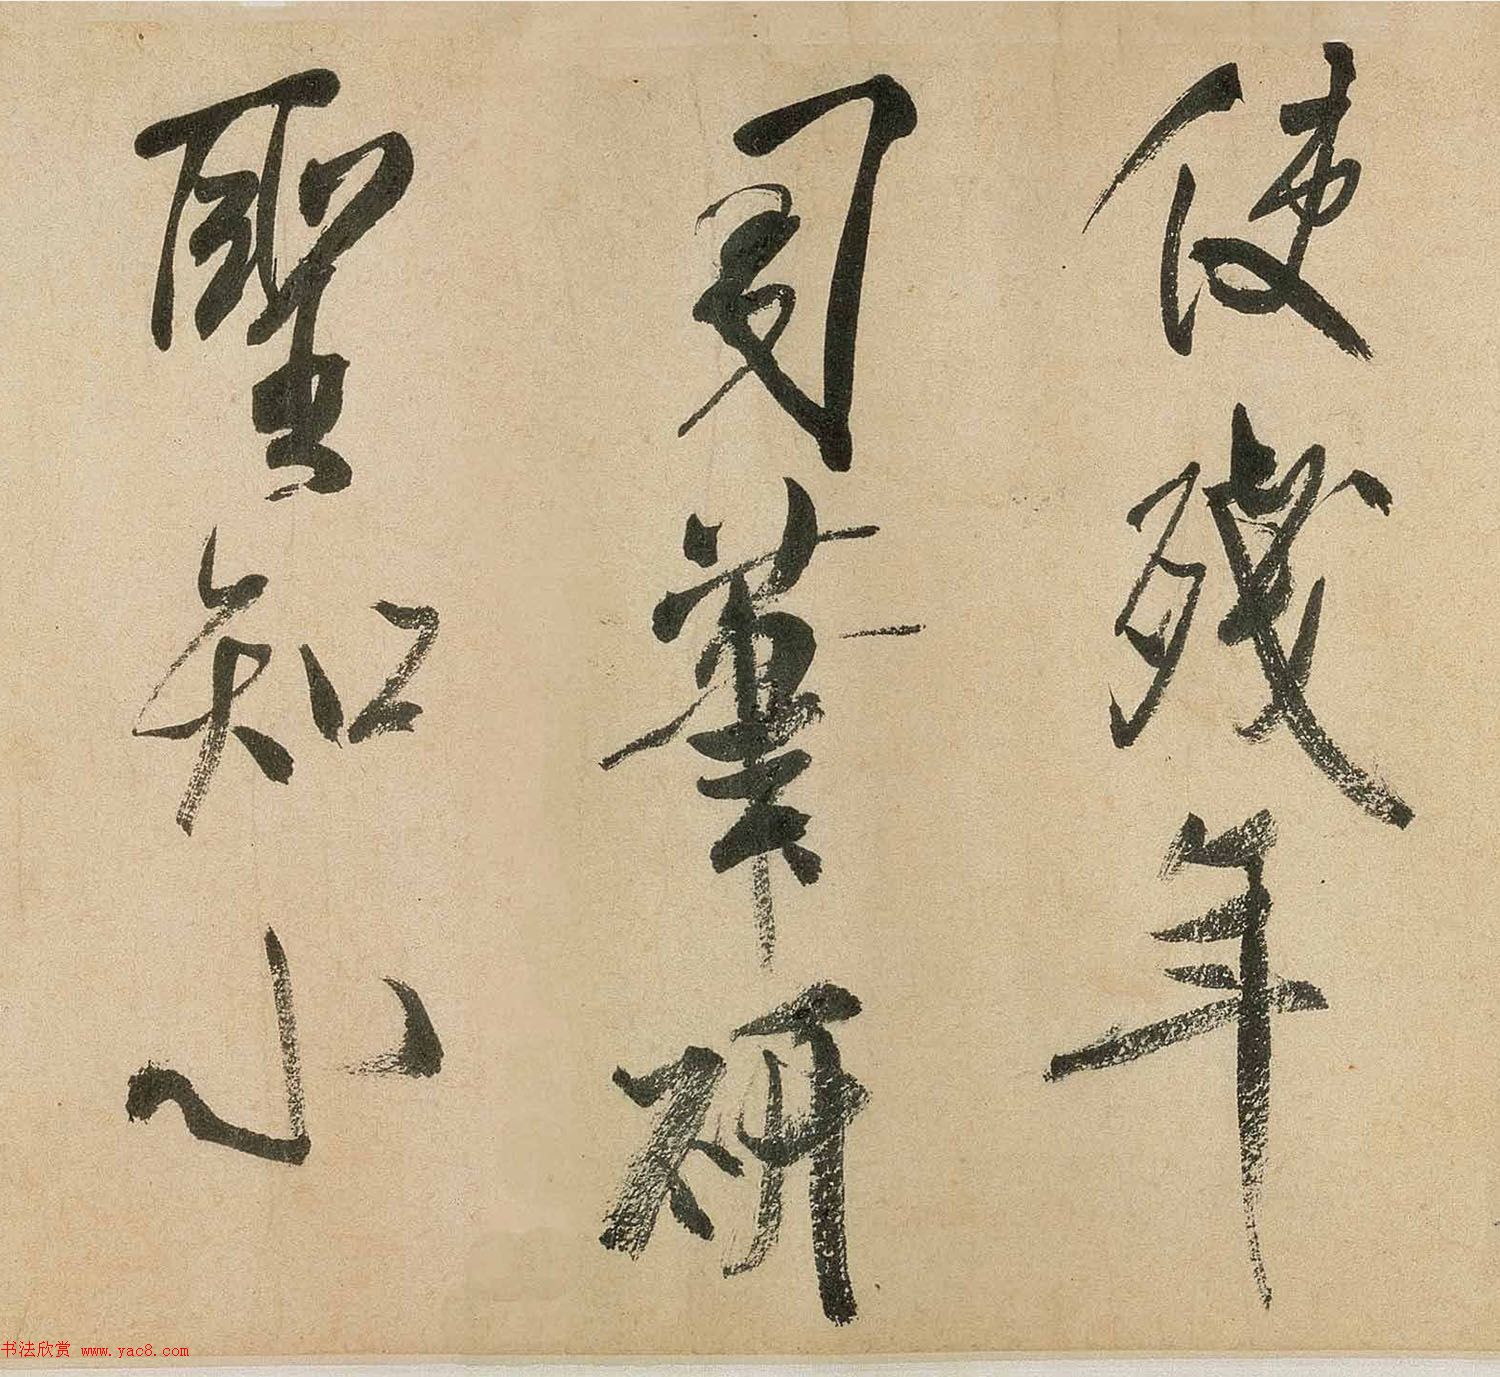 使殘年
司筆研
聖知小
书法欣赏 www.yac8.com